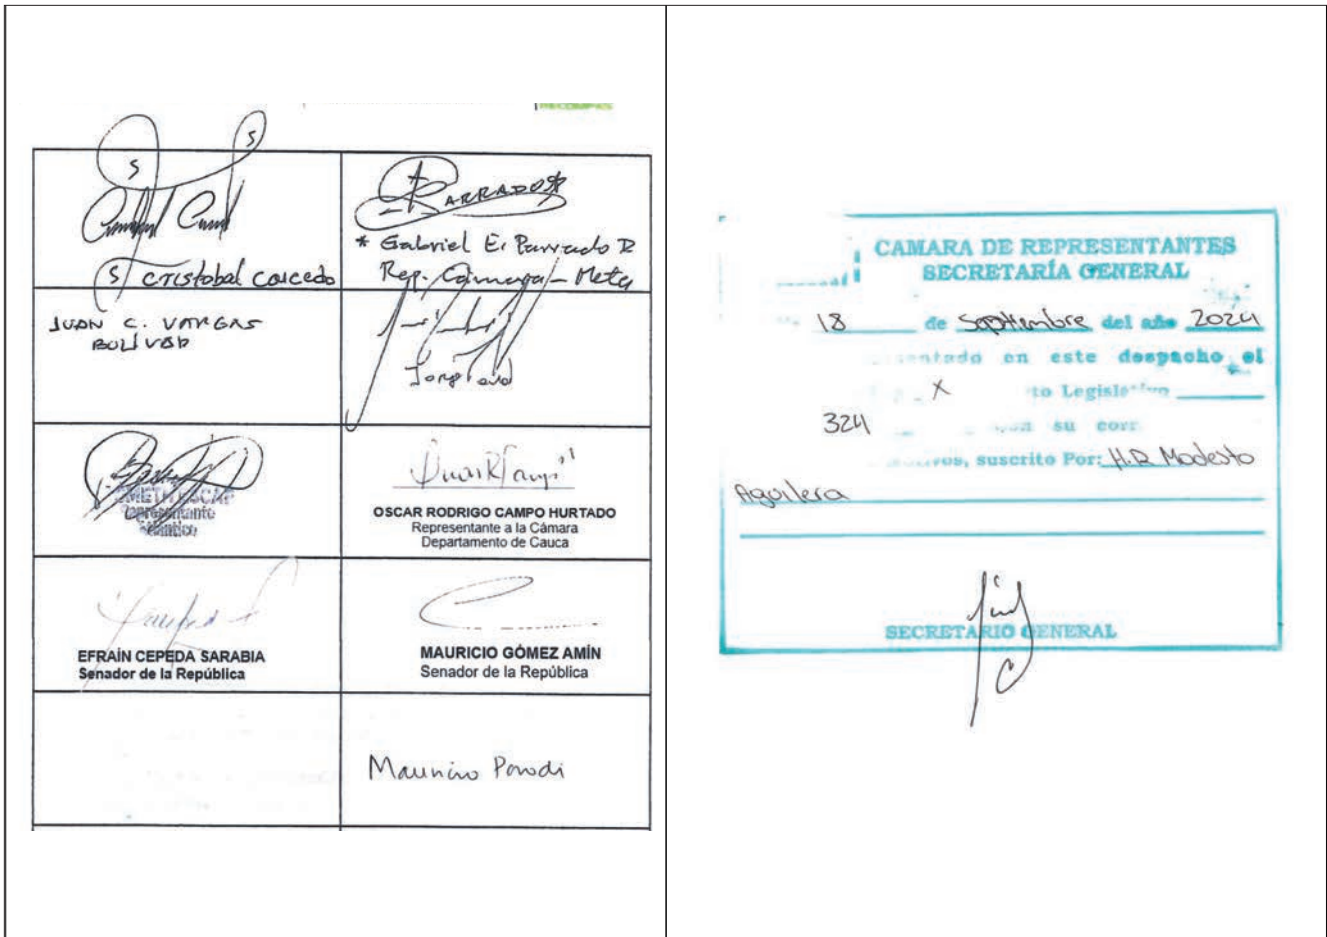 S
S
PARRADO
* Gabriel E. Parrado D
Rep. Cámara - Meta
S Cristobal Caicedo
JUAN C. VARGAS
BOLIVAR
Representante
Atlántico
OSCAR RODRIGO CAMPO HURTADO
Representante a la Cámara
Departamento de Cauca
EFRAÍN CEPEDA SARABIA
Senador de la República
MAURICIO GÓMEZ AMÍN
Senador de la República
Mauricio Parodi
CAMARA DE REPRESENTANTES
SECRETARÍA GENERAL
18 de Septiembre del año 2024
en este despacho el
X to Legislativo
324 su corr
suscrito Por: H.R Modesto
Aguilera
SECRETARIO GENERAL